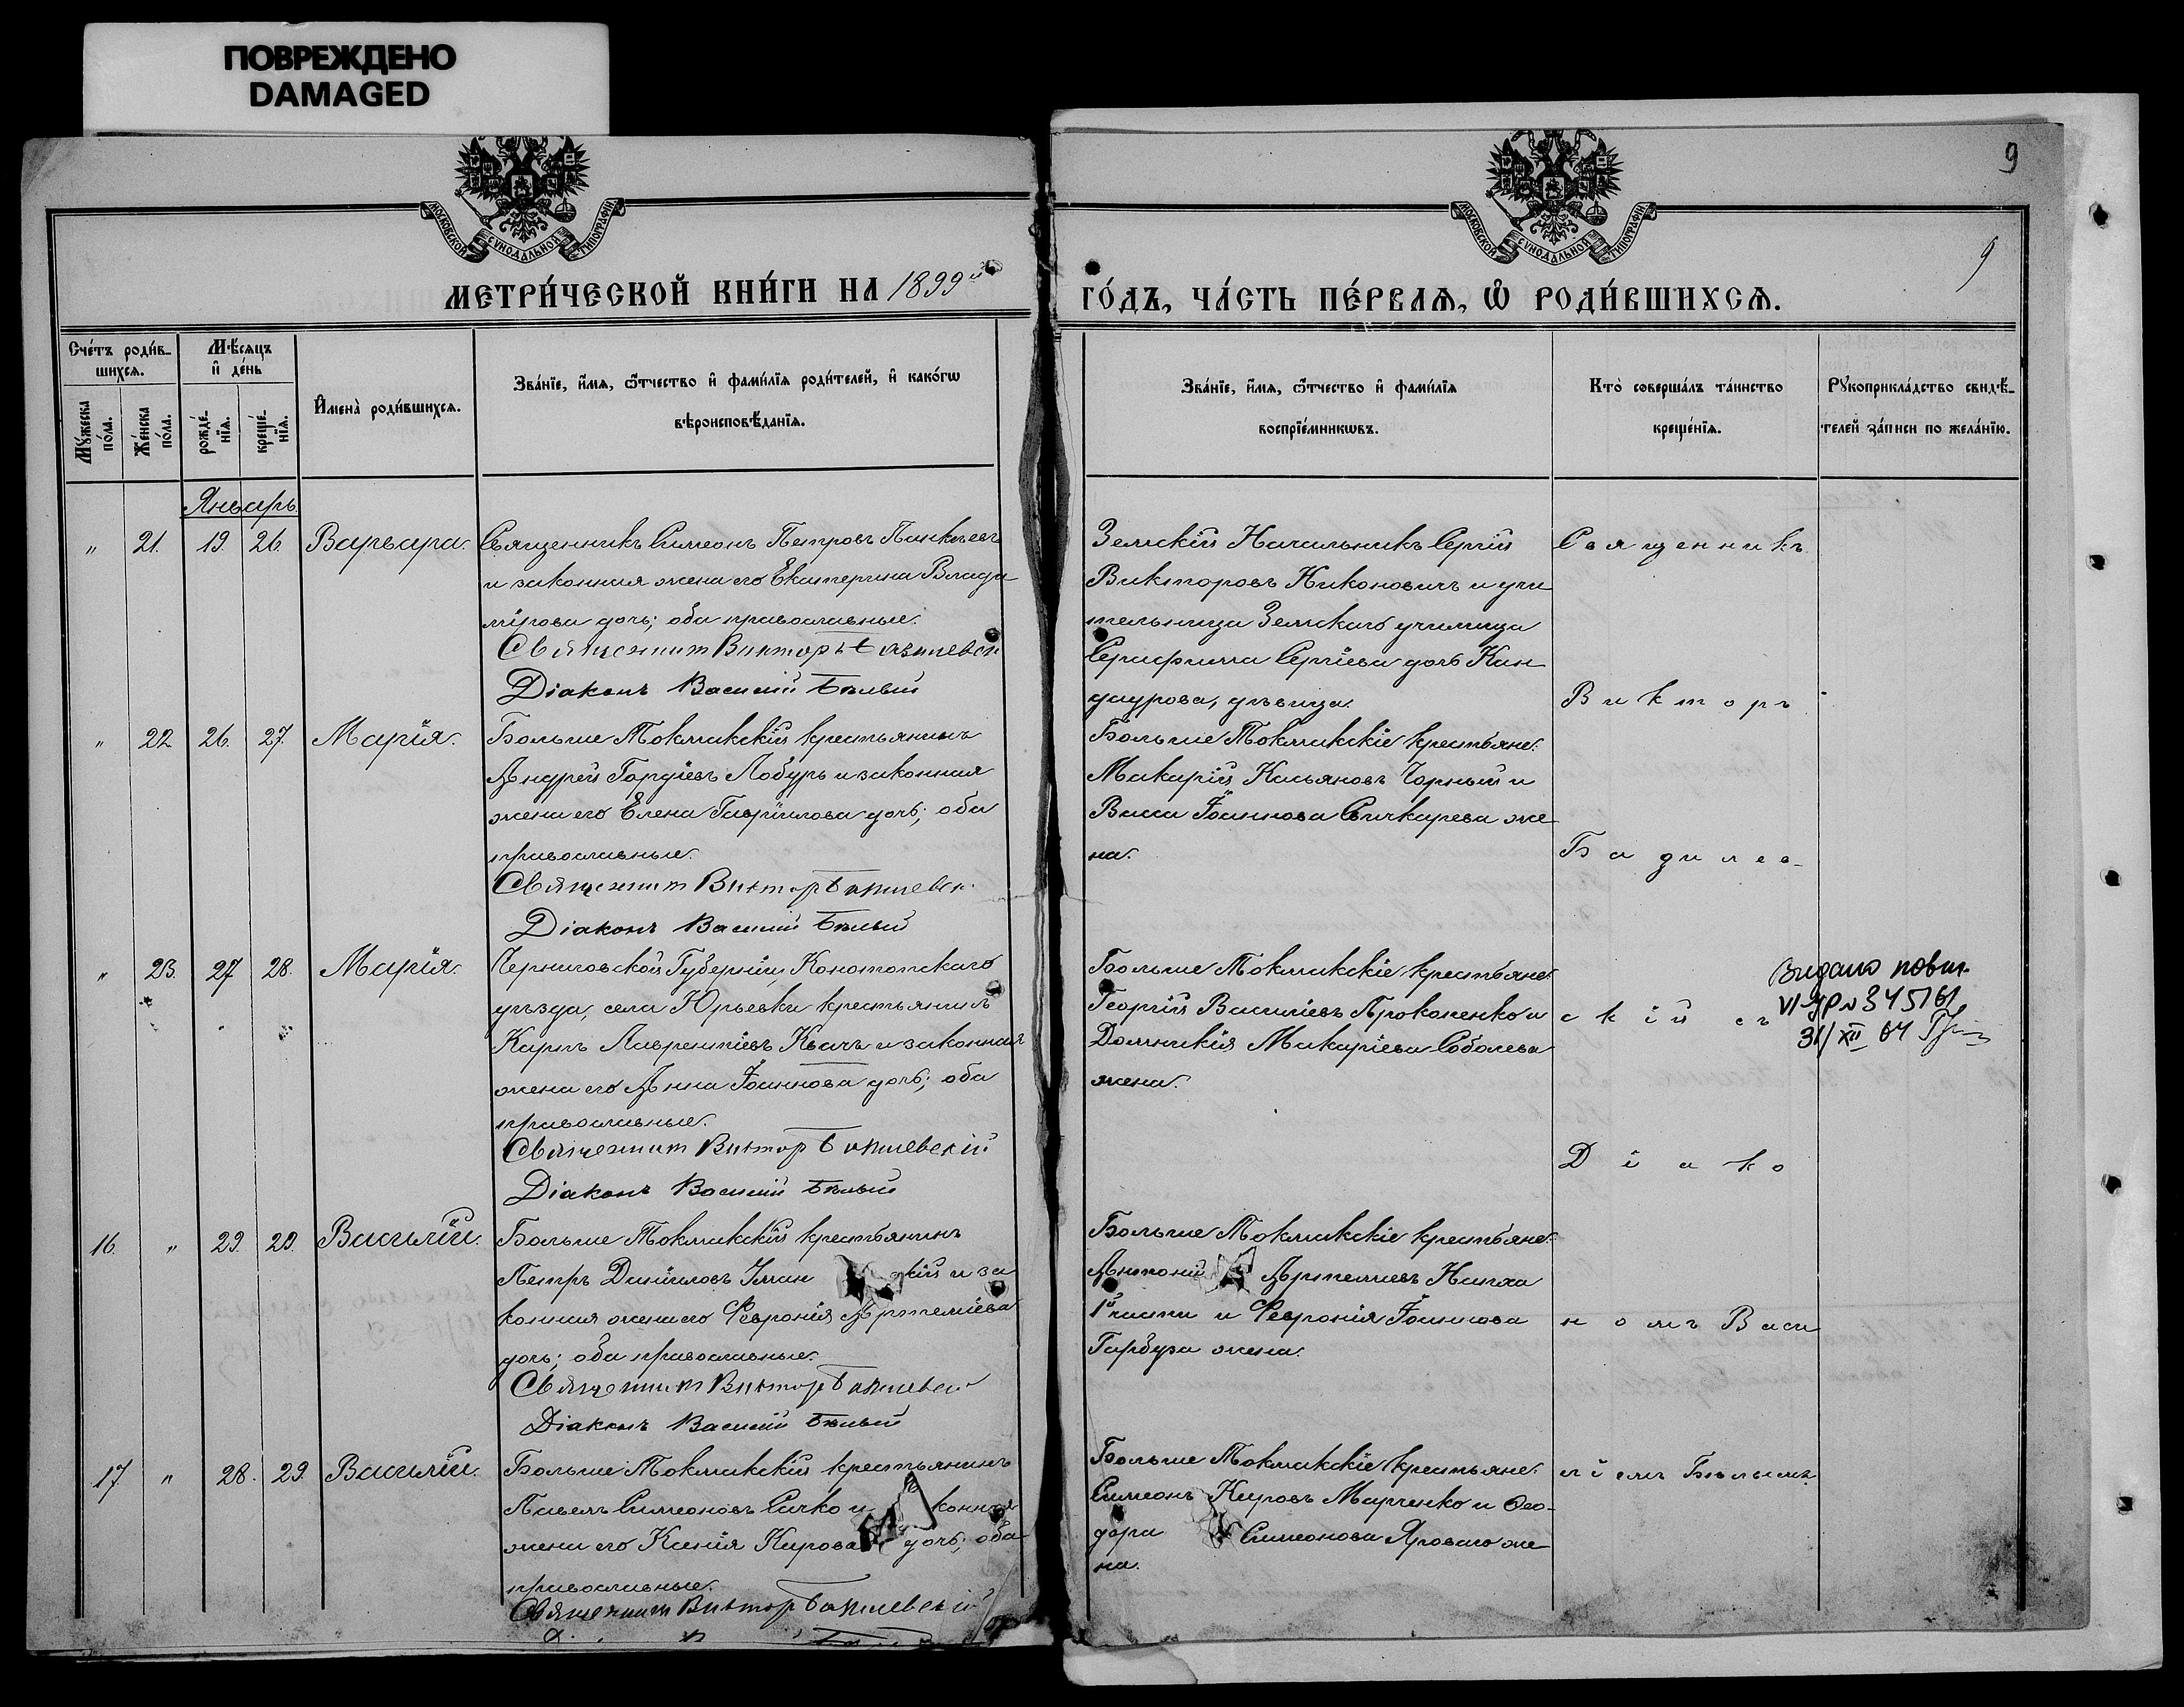 ПОВРЕЖДЕНО
DAMAGED
9
9
МОСКОВСКОЙ СѴНОДАЛЬНОЙ ТИПОГРАФІИ
МОСКОВСКОЙ СѴНОДАЛЬНОЙ ТИПОГРАФІИ
МЕТРИ́ЧЕСКОЙ КНИ́ГИ НА 1899й
ГО́ДЪ, ЧА́СТЬ ПЕ́РВАѦ, Ѽ РОДИ́ВШИХСѦ.
Сче́тъ роди́в-
шихсѧ.
Мѣ́сѧцъ
и҆ де́нь
Мꙋ́жеска
по́ла.
Же́нска
по́ла.
рожде́-
нїѧ.
креще́-
нїѧ.
И҆мена̀ роди́вшихсѧ.
Зва́нїе, и҆́мѧ, ѻ҆́тчество и҆ фами́лїѧ роди́телей, и҆ како́гѡ
вѣроисповѣ́данїѧ.
Зва́нїе, и҆́мѧ, ѻ҆́тчество и҆ фами́лїѧ
воспрїе́мникѡвъ.
Кто̀ соверша́лъ та́инство
креще́нїѧ.
Рꙋкоприкла́дство свидѣ́-
телей за́писи по жела́нїю.
Январь.
" 21. 19. 26. Варвара.
Священникъ Симеонъ Петровъ Панкѣевъ
и законная жена его Екатерина Влади
мірова дочь; оба православные.
Священник Викторъ Базилевск
Діаконъ Василій Бѣлый
Земскій Начальникъ Сергій
Викторовъ Никоновичъ и учи
тельница Земскаго училища
Серафима Сергіева дочь Кан
даурова, дѣвица.
" 22 26. 27. Марія.
Больше Токмакскій крестьянинъ
Андрей Гордіевъ Лобурь и законная
жена его Елена Гавріилова дочь; оба
православные.
Священник Виктор Базилевск
Діаконъ Василій Бѣлый
Больше Токмакскіе крестьяне:
Макарій Касьяновъ Чорный и
Васса Іоаннова Свичкарева же
на.
" 23. 27 28. Марія.
Черниговской Губерніи, Конотопскаго
уѣзда, села Юрьевки крестьянинъ
Карпъ Лаврентіевъ Квачъ и законная
жена его Анна Іоаннова дочь; оба
православные.
Священник Виктор Базилевскій
Діаконъ Василій Бѣлый
Больше Токмакскіе крестьяне:
Георгій Василіевъ Прокопенко и
Домникія Макаріева Соболева
жена.
Видано повт.
VI-УР № 345161
31/XII 64
16. " 29. 29. Василій.
Больше Токмакскій крестьянинъ
Петръ Даніиловъ кій и за
конная жена его Феvронія Артеміева
дочь; оба православные.
Священник Виктор Базилевск
Діаконъ Василій Бѣлый
Больше Токмакскіе крестьяне:
Антоній Артеміевъ Напха
1й части и Феvронія Іоаннова
Гарбуза жена.
17. " 28. 29. Василій.
Больше Токмакскій крестьянинъ
Павелъ Симеоновъ Сичко и конная
жена его Ксенія Кирова дочь; оба
православные.
Священник Виктор Базилевскій
Больше Токмакскіе крестьяне:
Симеонъ Кировъ Марченко и Ѳео-
дора Симеонова Яроваго же
на.
Священникъ
Викторъ
Базилев-
скій съ
Діако
номъ Васи
ліемъ Бѣлымъ